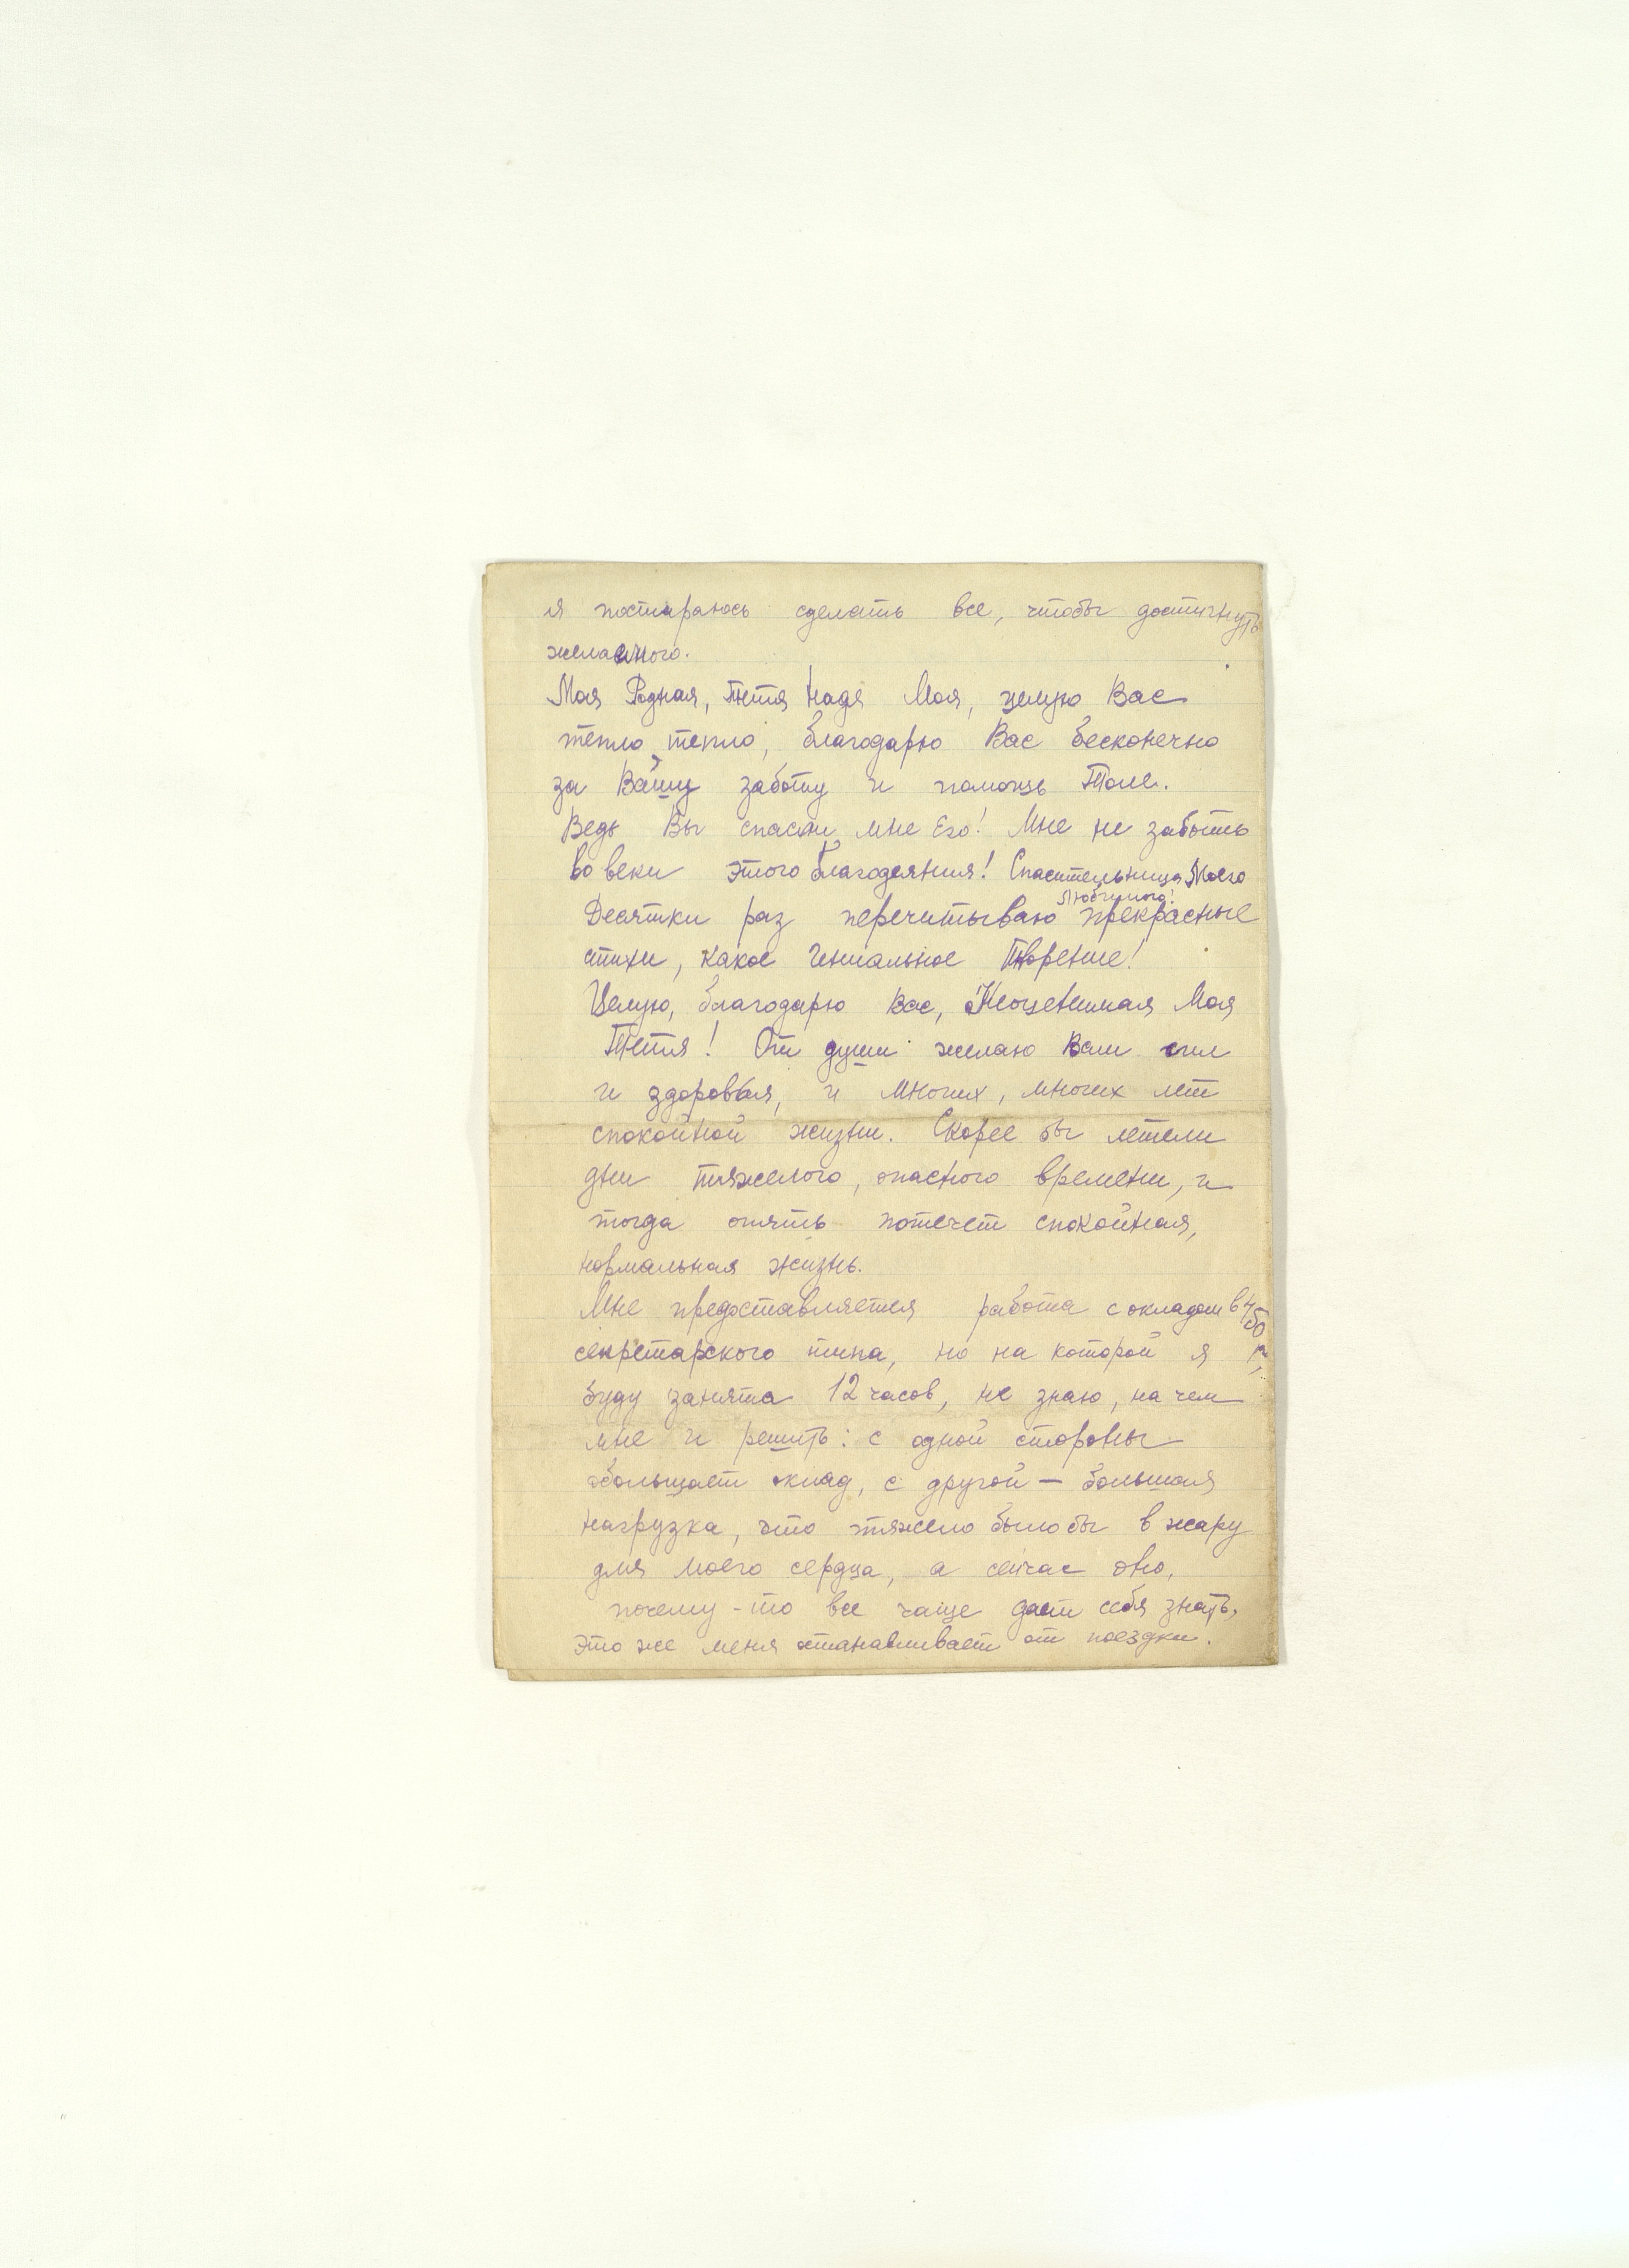 я постараюсь сделать все, чтобы достигнуть
желаемого.
Моя Родная, Тетя Надя Моя, целую Вас
тепло, тепло, благодарю Вас бесконечно
за Вашу заботу и помощь Толе.
Ведь Вы спасли мне Его! Мне не забыть
во веки этого благодеяния! Спасительница Моего
Любимого!
Десятки раз перечитываю прекрасные
стихи, какое гениальное Творение!
Целую, благодарю Вас, Неоценимая Моя
Тетя! От души желаю Вам сил
и здоровья, и многих, многих лет
спокойной жизни. Скорее бы летели
дни тяжелого, опасного времени, и
тогда опять потечет спокойная,
нормальная жизнь.
Мне предоставляется работа с окладом в 450 р.,
секретарского типа, но на которой я
буду занята 12 часов, не знаю, на чем
мне и решить: с одной стороны
обольщает оклад, с другой — большая
нагрузка, что тяжело было бы в жару
для моего сердца, а сейчас оно,
почему-то все чаще дает себя знать,
это же меня останавливает от поездки.